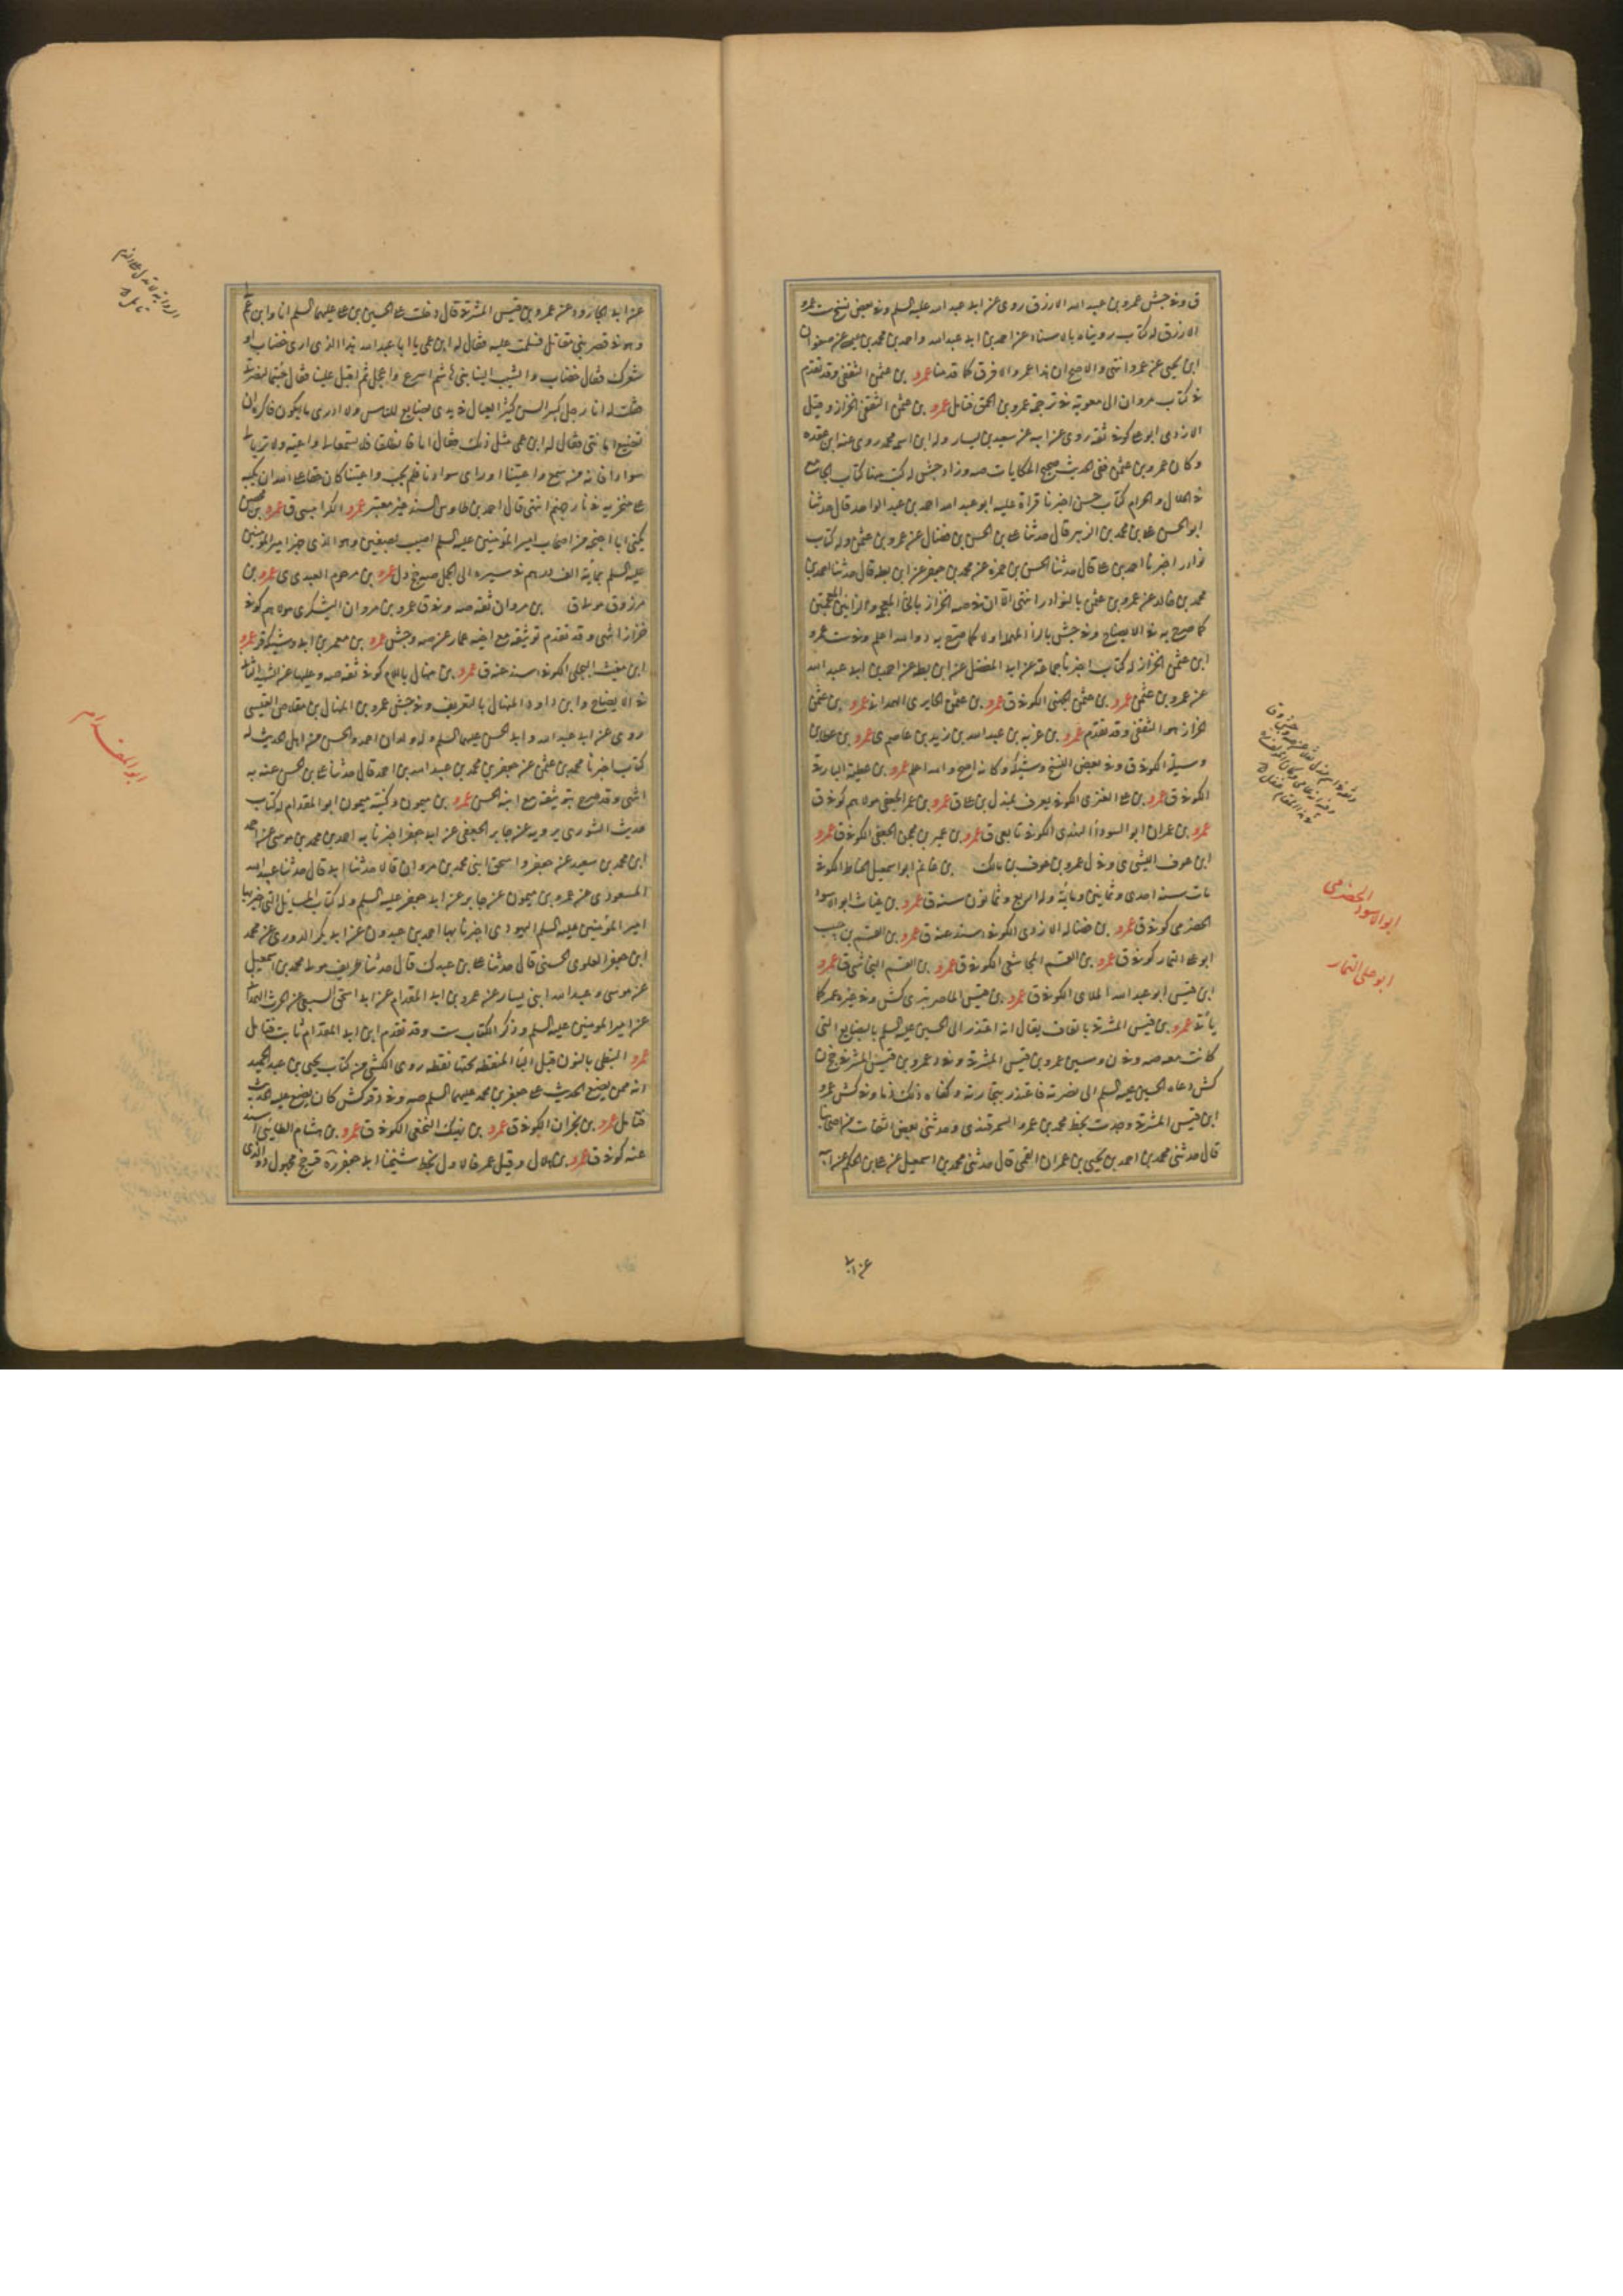 ق وفي جش عمرو بن عبد الله الازرق روى عن ابي عبد الله عليه السلم وفي بعض نسخ ست عمرو
الازرق له كتاب رويناه بالاسناد عن احمد بن ابي عبد الله واحمد بن محمد بن عيسى عن صفوان
ابن يحيى عن عمرو انتهى والاصح ان هذا عمرو الافرق كما قدمنا عمرو بن عثمن الثقفي وقد تقدم
في كتاب مروان الى معوية في ترجمة عمرو بن الحمق فتامل عمرو بن عثمن الثقفي الخزاز وقيل
الازدي ابو علي كوفي ثقة روى عن ابيه عن سعيد بن يسار وله ابن اسمه محمد روى عنه ابن عقده
وكان عمرو بن عثمن نقي الحديث صحيح الحكايات صه وزاد جش له كتب منها كتاب الجامع
في الحلال والحرام كتاب حسن اخبرنا قراة عليه ابو عبد الله احمد بن عبد الواحد قال حدثنا
ابو الحسن علي بن محمد بن الزبير قال حدثنا علي بن الحسن بن فضال عن عمرو بن عثمن وله كتاب
نوادر اخبرنا احمد بن علي قال حدثنا الحسن بن حمزه عن محمد بن جعفر عن ابن بطه قال حدثنا احمد بن
محمد بن خالد عن عمرو بن عثمن بالنوادر انتهى الا ان في صه الخزاز بالخاء المعجمه والزايين المعجمتين
كما صرح به في الايضاح وفي جش بالراء المهملة اولا كما صرح به د والله اعلم وفي ست عمرو
ابن عثمن الخزاز له كتاب اخبرنا جماعة عن ابي المفضل عن ابن بطه عن احمد بن ابي عبد الله
عن عمرو بن عثمن عمرو بن عثمن الجهني الكوفي ق عمرو بن عثمن الجابري الهمداني عمرو بن عثمن
الخزاز هو الثقفي وقد تقدم عمرو بن عزيه بن عبد الله بن زيد بن عاصم ي عمرو بن عطا بن
وسيلة الكوفي ق وفي بعض النسخ وشيكه وكانه اصح والله اعلم عمرو بن عطية البارقي
الكوفي ق عمرو بن علي العنزي الكوفي يعرف بمندل بن علي ق عمرو بن عمر الجعفي مولاهم كوفي ق
عمرو بن عمران ابو السوداء النهدي الكوفي تابعي ق عمرو بن عمير بن محجن الجعفي الكوفي ق عمرو
ابن عوف الليثي ي وفي ل عمرو بن عوف بن مالك بن غانم ابو اسمعيل الحناط الكوفي
مات سنة احدى وثمانين ومائة وله اربع وثمانون سنة ق عمرو بن غياث ابو الاسود
الحضرمي كوفي ق عمرو بن فضاله الازدي الكوفي اسند عنه ق عمرو بن القسم بن حبيب
ابو علي التمار كوفي ق عمرو بن القسم المجاشعي الكوفي ق عمرو بن القسم النجاشي ق عمرو
ابن قيس ابو عبد الله الملاي الكوفي ق عمرو بن قيس الماصر بتري كش وفي غيره عمر كما
ياتي عمرو بن قيس المشرقي بالقاف يقال انه اعتذر الى الحسين عليه السلم بالبضايع التي
كانت معه صه وفي ن وسين عمرو بن قيس المشرقي وفي د عمرو بن قيس المشرقي خ ن
كش دعاه الحسين عليه السلم الى نصرته فاعتذر بتجارته وكفاه ذلك ذما وفي كش عمرو
ابن قيس المشرقي وجدت بخط محمد بن عمر السمرقندي وحدثني بعض الثقات من اصحابنا
قال حدثني محمد بن احمد بن يحيى بن عمران القمي قال حدثني محمد بن اسمعيل عن علي بن الحكم عن ابيه
عن ابي
ابو الاسود الحضرمي
ابو علي التمار
عن ابي الجارود عن عمرو بن قيس المشرقي قال دخلت على الحسين بن علي عليهما السلم انا وابن عم لي
وهو في قصر بني مقاتل فسلمت عليه فقال له ابن عمي يا ابا عبد الله هذا الذي ارى خضاب او
شعرك فقال خضاب والشيب الينا بني هاشم اسرع واعجل ثم اقبل علينا فقال جئتما لنصرتي
فقلت له انا رجل كبير السن كثير العيال في يدي بضايع للناس ولا ادري ما يكون فاكره ان
تضيع امانتي فقال له ابن عمي مثل ذلك فقال اما فانطلقا فلا تسمعا لي واعية ولا تريا لي
سوادا فانه من سمع واعيتنا او راى سوادنا فلم يجب واعيتنا كان حقا على الله ان يكبه
على منخريه في نار جهنم انتهى قال احمد بن طاوس السند غير معتبر عمرو الكرابيسي ق عمرو بن محصن
يكنى ابا احيحه من اصحاب امير المؤمنين عليه السلم اصيب بصفين وهو الذي جهز امير المؤمنين
عليه السلم بمائة الف درهم في مسيره الى الجمل صه جخ د ل عمرو بن مرحوم العبدي ي عمرو بن
مرزوق مولا ق بن مروان ثقة صه وفي ق عمرو بن مروان اليشكري مولاهم كوفي
خزاز انتهى وقد تقدم توثيقه مع اخيه عمار عن صه وجش عمرو بن معمر بن ابي وشيكه قر عمرو
ابن مغيث البجلي الكوفي اسند عنه ق عمرو بن منهال باللام كوفي ثقة صه وعليها عن الشهيد الثاني
في الايضاح وابن داود المنهال بالتعريف وفي جش عمرو بن المنهال بن مقلاص القيسي
روى عن ابي عبد الله وابي الحسن عليهما السلم وله ولدان احمد والحسن من اهل الحديث له
كتاب اخبرنا محمد بن عثمن عن جعفر بن محمد بن عبيد الله بن احمد قال حدثنا علي بن الحسن عنه به
انتهى وقد صرح بتوثيقه مع ابنه الحسن عمرو بن ميمون وكنية ميمون ابو المقدام له كتاب
حديث الشورى يرويه عن جابر الجعفي عن ابي جعفر اخبرنا به احمد بن محمد بن موسى عن احمد
ابن محمد بن سعيد عن جعفر واسحق ابني محمد بن مروان قالا حدثنا ابي قال حدثنا عبيد الله
المسعودي عن عمرو بن ميمون عن جابر عن ابي جعفر عليه السلم وله كتاب المسايل التي اخبر بها
امير المؤمنين عليه السلم اليهودي اخبرنا بها احمد بن عبدون عن ابي بكر الدوري عن محمد
ابن جعفر العلوي الحسني قال حدثنا علي بن عبدك قال حدثنا طريف مولى محمد بن اسمعيل
عن موسى وعبيد الله ابني يسار عن عمرو بن ابي المقدام عن ابي اسحق السبيعي عن الحرث الهمداني
عن امير المؤمنين عليه السلم وذكر الكتاب ست وقد تقدم ابن ابي المقدام ثابت فتامل
عمرو النبطي بالنون قبل الباء المنقطه تحتها نقطه روى الكشي من كتاب يحيى بن عبد الحميد
انه ممن يضع الحديث على جعفر بن محمد عليهما السلم صه وفي د ق كش كان يضع عليه الحديث
فتامل عمرو بن نجران الكوفي ق عمرو بن نهيك النخعي الكوفي ق عمرو بن هشام الطايي اسند
عنه كوفي ق عمرو بن هلال وقيل عمر فالاول بخط شيخنا ابي جعفر ره قر جخ مجهول د والذي
الرواية لا تدل على الذم
تامل
ابو المقدام